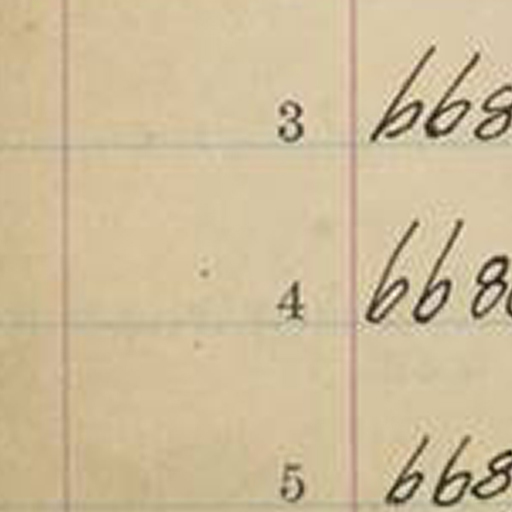 3 668
4 668
5 668